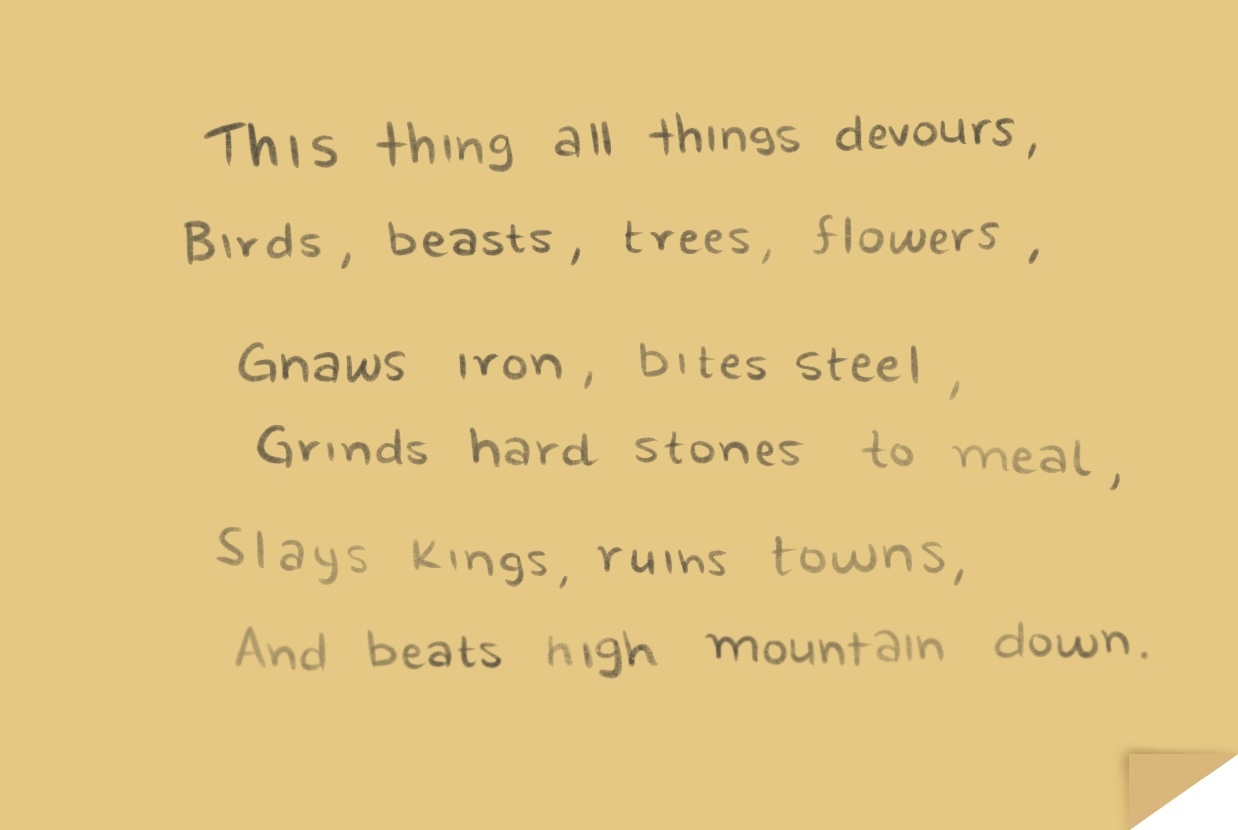 This thing all things devours,
Birds, beasts, trees, flowers,
Gnaws iron, bites steel,
Grinds hard stones to meal,
Slays kings, ruins towns,
And beats high mountain down.